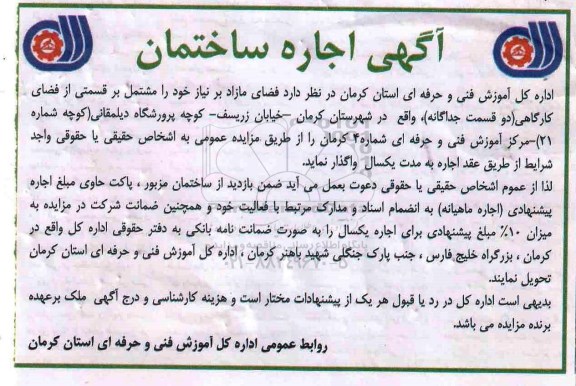 آگهی اجاره ساختمان
اداره کل آموزش فنی و حرفه ای استان کرمان در نظر دارد فضای مازاد بر نیاز خود را مشتمل بر قسمتی از فضای
کارگاهی(دو قسمت جداگانه)، واقع در شهرستان کرمان –خیابان زریسف– کوچه پرورشگاه دیلمقانی(کوچه شماره
۲۱)–مرکز آموزش فنی و حرفه ای شماره۴ کرمان را از طریق مزایده عمومی به اشخاص حقیقی یا حقوقی واجد
شرایط از طریق عقد اجاره به مدت یکسال واگذار نماید.
لذا از عموم اشخاص حقیقی یا حقوقی دعوت بعمل می آید ضمن بازدید از ساختمان مزبور ، پاکت حاوی مبلغ اجاره
پیشنهادی (اجاره ماهیانه) به انضمام اسناد و مدارک مرتبط با فعالیت خود و همچنین ضمانت شرکت در مزایده به
میزان ۱۰٪ مبلغ پیشنهادی برای اجاره یکسال را به صورت ضمانت نامه بانکی به دفتر حقوقی اداره کل واقع در
کرمان ، بزرگراه خلیج فارس ، جنب پارک جنگلی شهید باهنر کرمان ، اداره کل آموزش فنی و حرفه ای استان کرمان
تحویل نمایند.
بدیهی است اداره کل در رد یا قبول هر یک از پیشنهادات مختار است و هزینه کارشناسی و درج آگهی ملک برعهده
برنده مزایده می باشد.
روابط عمومی اداره کل آموزش فنی و حرفه ای استان کرمان